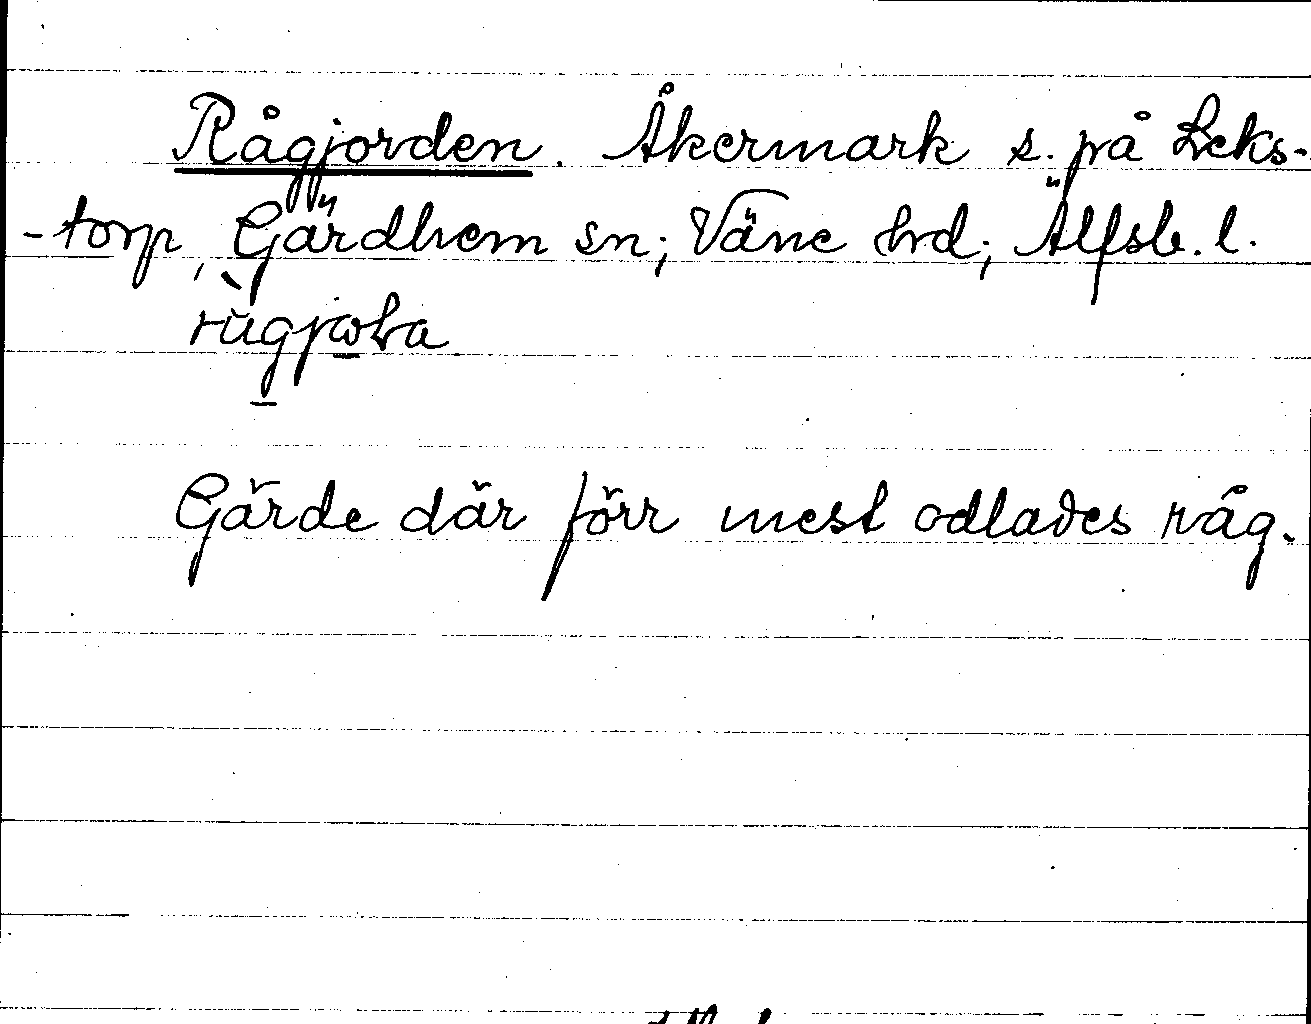 Rågjorden. Åkermark s. på Leks-
-torp, Gärdhem sn; Väne hrd; Älfsb. l.
Gärde där förr mest odlades råg.